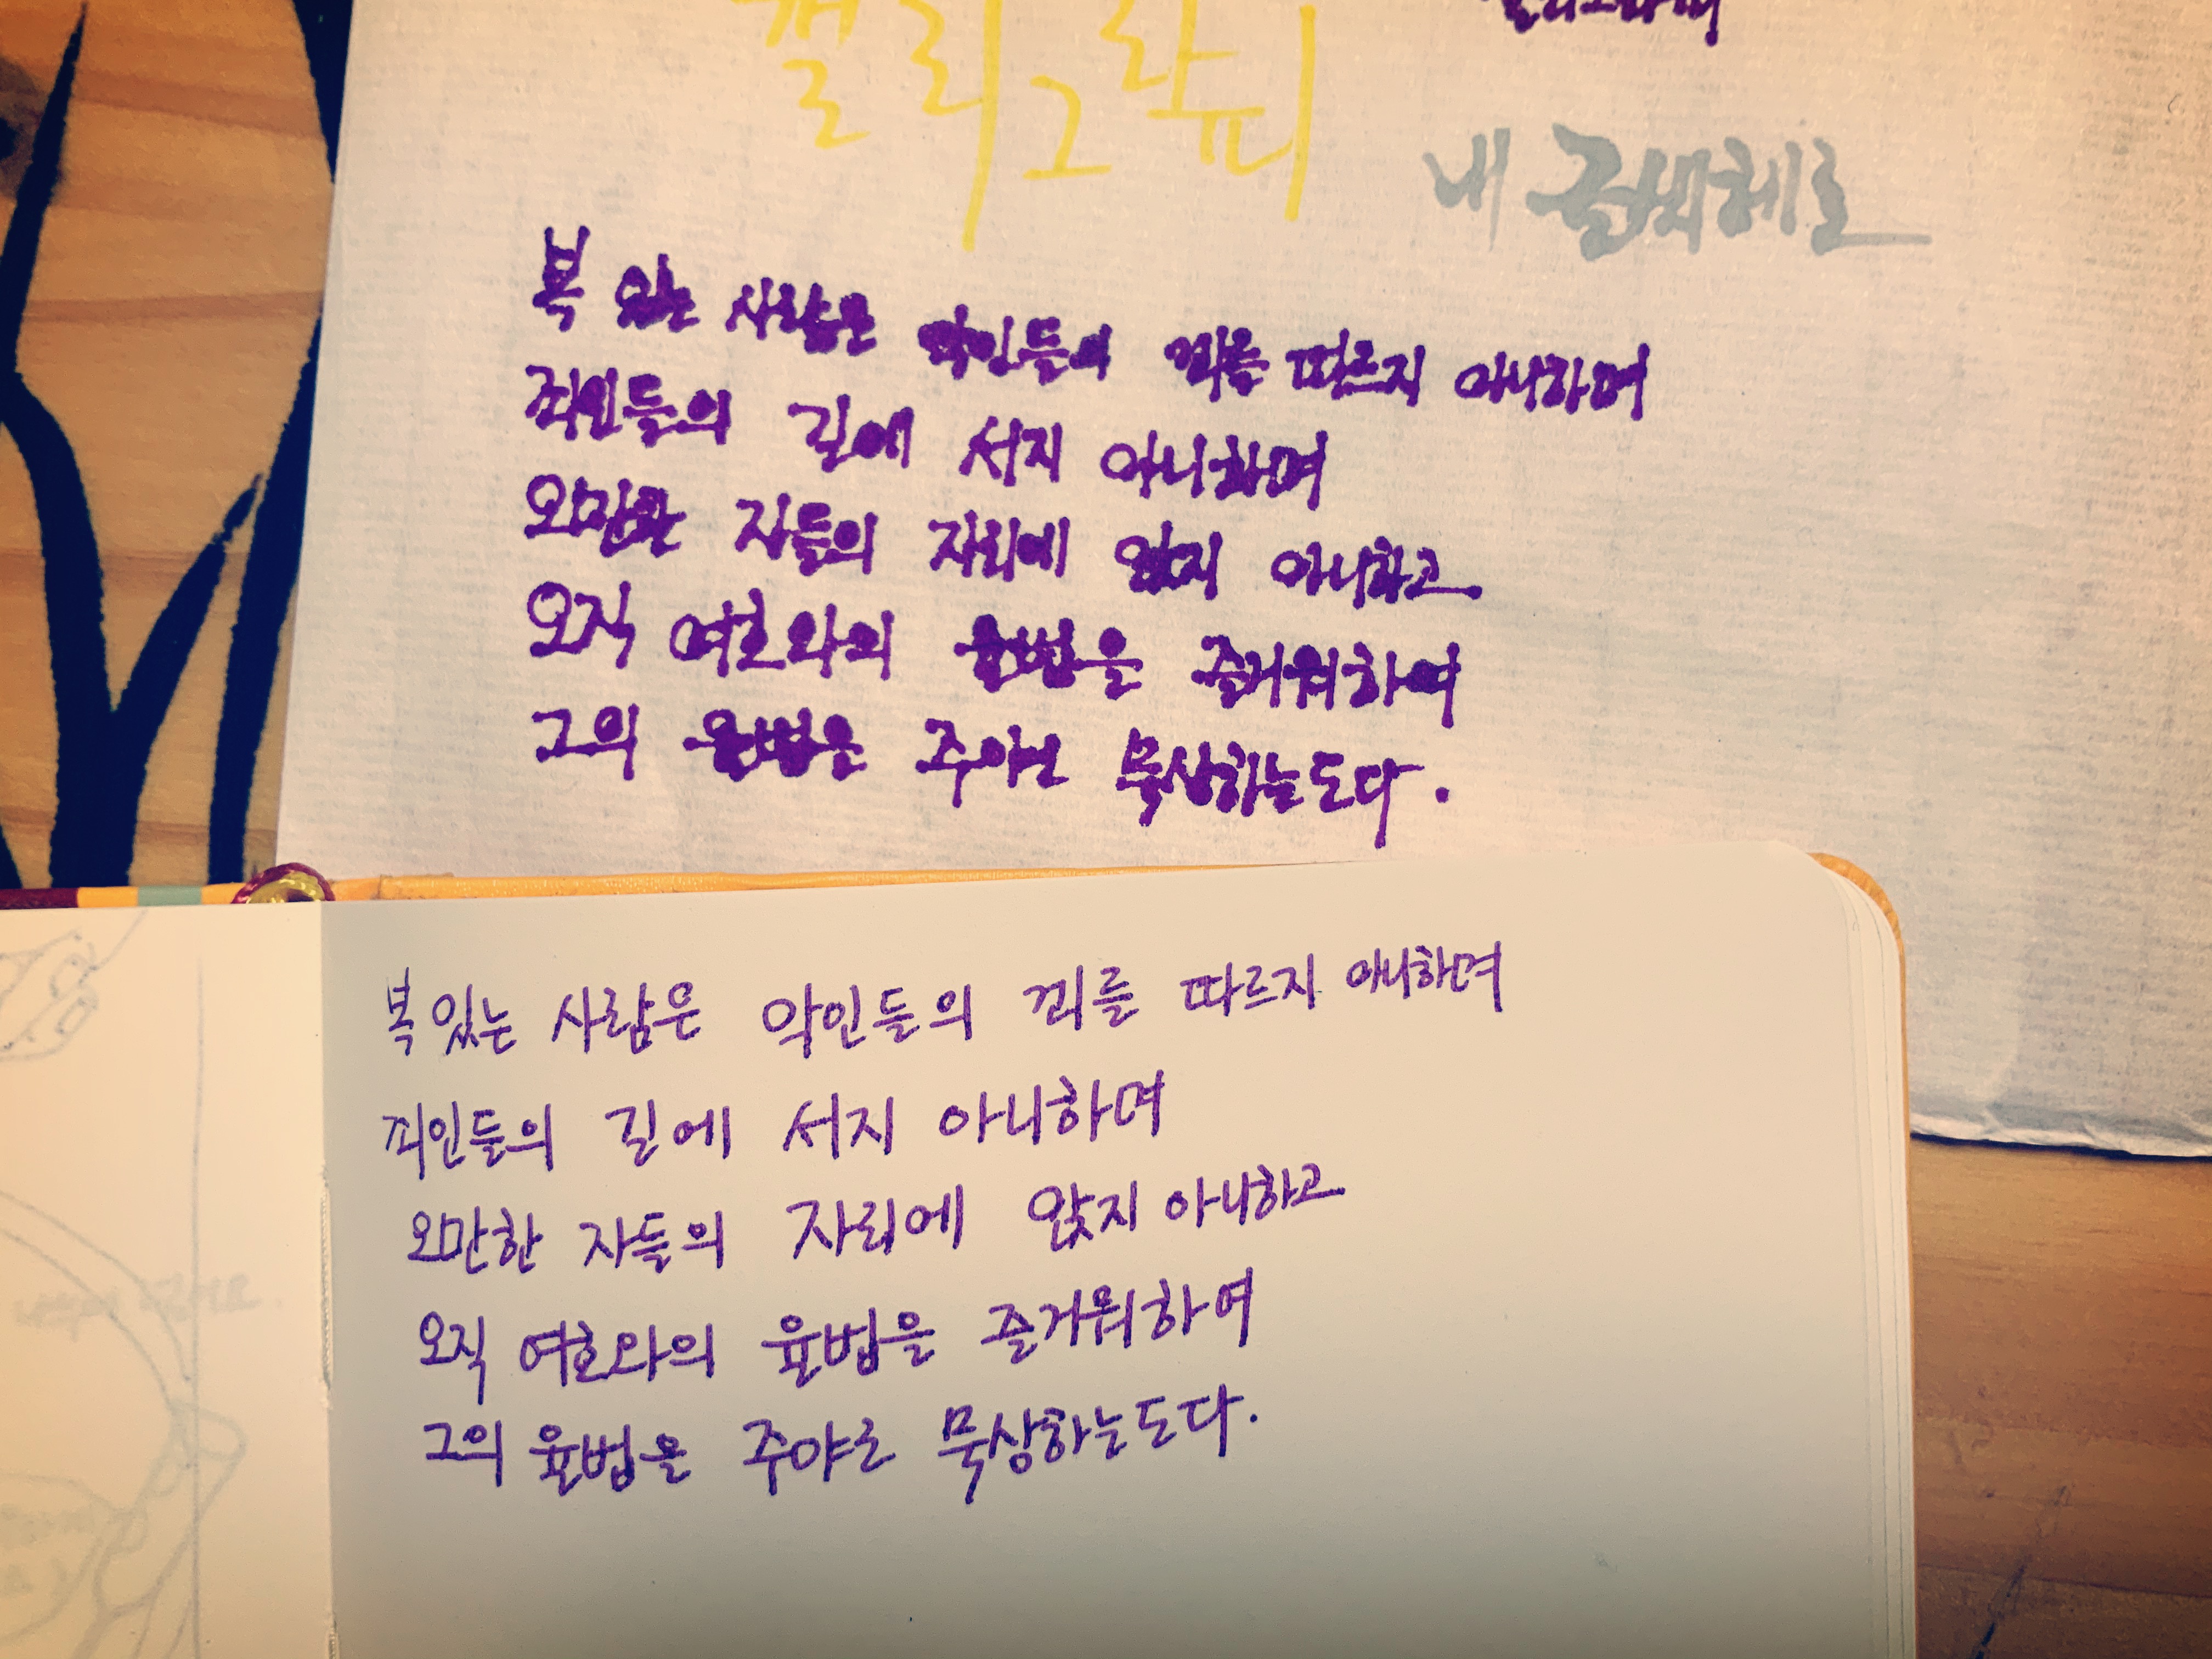 캘리그라피
캘리그라피
내 글씨체로
복 있는 사람은 악인들의 꾀를 따르지 아니하며
죄인들의 길에 서지 아니하며
오만한 자들의 자리에 앉지 아니하고
오직 여호와의 율법을 즐거워하여
그의 율법을 주야로 묵상하는도다.
복 있는 사람은 악인들의 꾀를 따르지 아니하며
죄인들의 길에 서지 아니하며
오만한 자들의 자리에 앉지 아니하고
오직 여호와의 율법을 즐거워하여
그의 율법을 주야로 묵상하는도다.